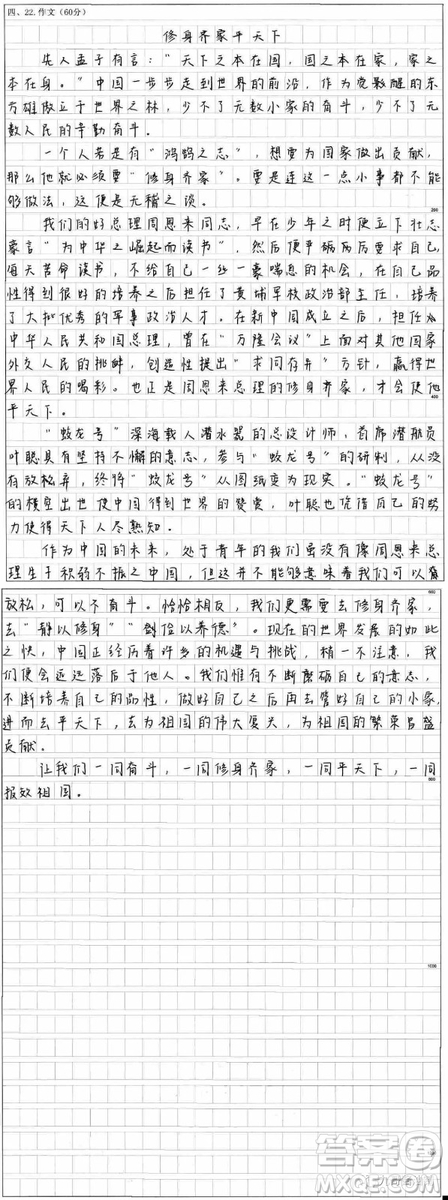 四、22.作文(60分)
修身齐家平天下
先人孟子有言："天下之本在国，国之本在家，家之
本在身。"中国一步步走到世界的前沿，作为觉醒的东
方雄傲立于世界之林，少不了无数小家的奋斗，少不了无
数人民的辛勤奋斗。
一个人若是有"鸿鹄之志"，想要为国家做出贡献，
那么他就必须要"修身齐家"。要是连这一点小事都不能
够做法，这便是无稽之谈。
200
我们的好总理周恩来同志，早在少年之时便立下壮志
豪言"为中华之崛起而读书"，然后便严厉要求自己，
每天苦命读书，不给自己一丝一毫喘息的机会，在自己品
性得到很好的培养之后担任了黄埔军校政治部主任，培养
了大批优秀的军事政治人才。在新中国成立之后，担任
中华人民共和国总理，曾在"万隆会议"上面对其他国家
外交人民的挑衅，创造性提出"求同存异"方针，赢得世
界人民的喝彩。也正是周恩来总理的修身齐家，才会使他
400
平天下。
"蛟龙号"深海载人潜水器的总设计师、首席潜航员
叶聪具有坚持不懈的意志，参与"蛟龙号"的研制，从没
有放松弃，终将"蛟龙号"从图纸变为现实。"蛟龙号"
的横空出世使中国得到世界的赞赏，叶聪也凭借自己的努
力使得天下人尽熟知。
作为中国的未来，处于青年的我们虽没有像周恩来总
理生于积弱不振之中国，但这并不能够意味着我们可以
600
放松，可以不奋斗。恰恰相反，我们更需要去修身齐家，
去"静以修身""俭以养德"。现在的世界发展的如此
之快，中国正经历着许多的机遇与挑战，稍一不注意，我
们便会远远落后于他人。我们惟有不断磨砺自己的意志，
不断培养自己的品性，做好自己之后再去管好自己的小家，
进而去平天下，去为祖国的伟大复兴，为祖国的繁荣昌盛
贡献。
让我们一同奋斗，一同修身齐家，一同平天下，一同
800
报效祖国。
1000
答案圈
MXQE.COM